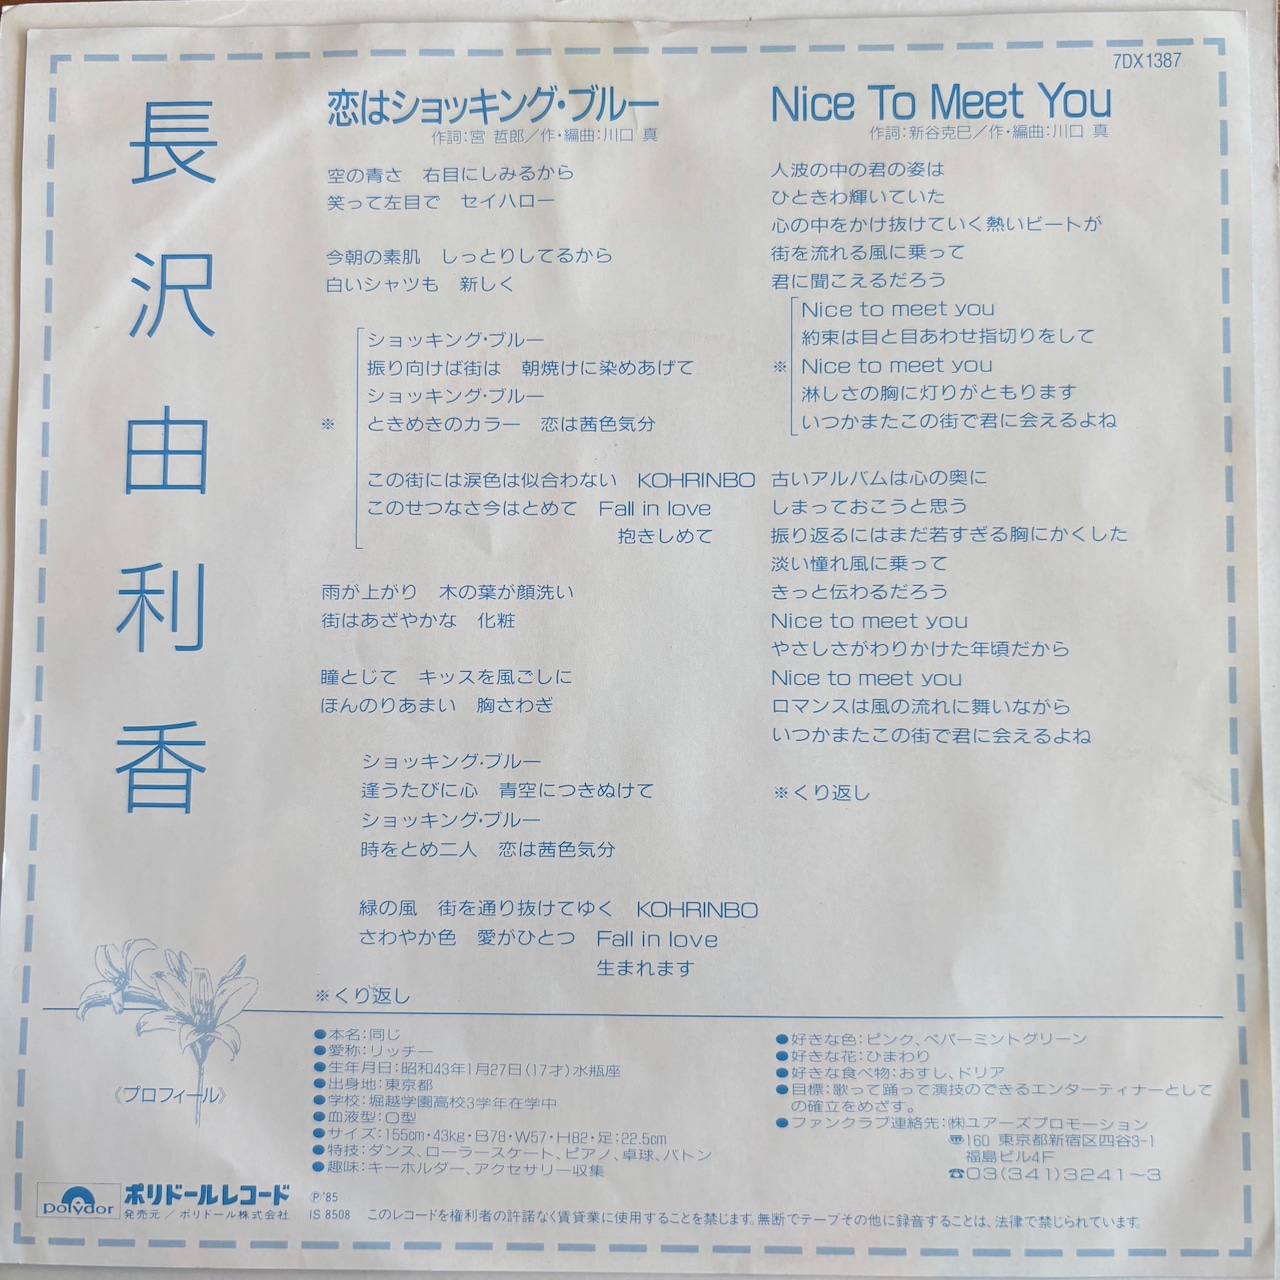 7DX1387
長沢由利香
恋はショッキング・ブルー
作詞:宮 哲郎/作・編曲:川口 真
空の青さ 右目にしみるから
笑って左目で セイハロー
今朝の素肌 しっとりしてるから
白いシャツも 新しく
ショッキング・ブルー
振り向けば街は 朝焼けに染めあげて
ショッキング・ブルー
※ ときめきのカラー 恋は茜色気分
この街には涙色は似合わない KOHRINBO
このせつなさ今はとめて Fall in love
抱きしめて
雨が上がり 木の葉が顔洗い
街はあざやかな 化粧
瞳とじて キッスを風ごしに
ほんのりあまい 胸さわぎ
ショッキング・ブルー
逢うたびに心 青空につきぬけて
ショッキング・ブルー
時をとめ二人 恋は茜色気分
緑の風 街を通り抜けてゆく KOHRINBO
さわやか色 愛がひとつ Fall in love
生まれます
※くり返し
Nice To Meet You
作詞:新谷克巳/作・編曲:川口 真
人波の中の君の姿は
ひときわ輝いていた
心の中をかけ抜けていく熱いビートが
街を流れる風に乗って
君に聞こえるだろう
Nice to meet you
約束は目と目あわせ指切りをして
※ Nice to meet you
淋しさの胸に灯りがともります
いつかまたこの街で君に会えるよね
古いアルバムは心の奥に
しまっておこうと思う
振り返るにはまだ若すぎる胸にかくした
淡い憧れ風に乗って
きっと伝わるだろう
Nice to meet you
やさしさがわりかけた年頃だから
Nice to meet you
ロマンスは風の流れに舞いながら
いつかまたこの街で君に会えるよね
※くり返し
《プロフィール》
●本名:同じ
●愛称:リッチー
●生年月日:昭和43年1月27日(17才)水瓶座
●出身地:東京都
●学校:堀越学園高校3学年在学中
●血液型:O型
●サイズ:155cm・43kg・B78・W57・H82・足:22.5cm
●特技:ダンス、ローラースケート、ピアノ、卓球、バトン
●趣味:キーホルダー、アクセサリー収集
●好きな色:ピンク、ペパーミントグリーン
●好きな花:ひまわり
●好きな食べ物:おすし、ドリア
●目標:歌って踊って演技のできるエンターティナーとして
の確立をめざす。
●ファンクラブ連絡先:㈱ユアーズプロモーション
〠160 東京都新宿区四谷3-1
福島ビル4F
☎03(341)3241〜3
polydor
ポリドールレコード
発売元/ポリドール株式会社
Ⓟ'85
IS 8508 このレコードを権利者の許諾なく賃貸業に使用することを禁じます。無断でテープその他に録音することは、法律で禁じられています。